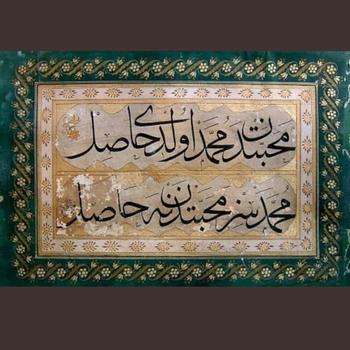 محبتدن محمد اولدى حاصل
محمدسز محبتدن نه حاصل